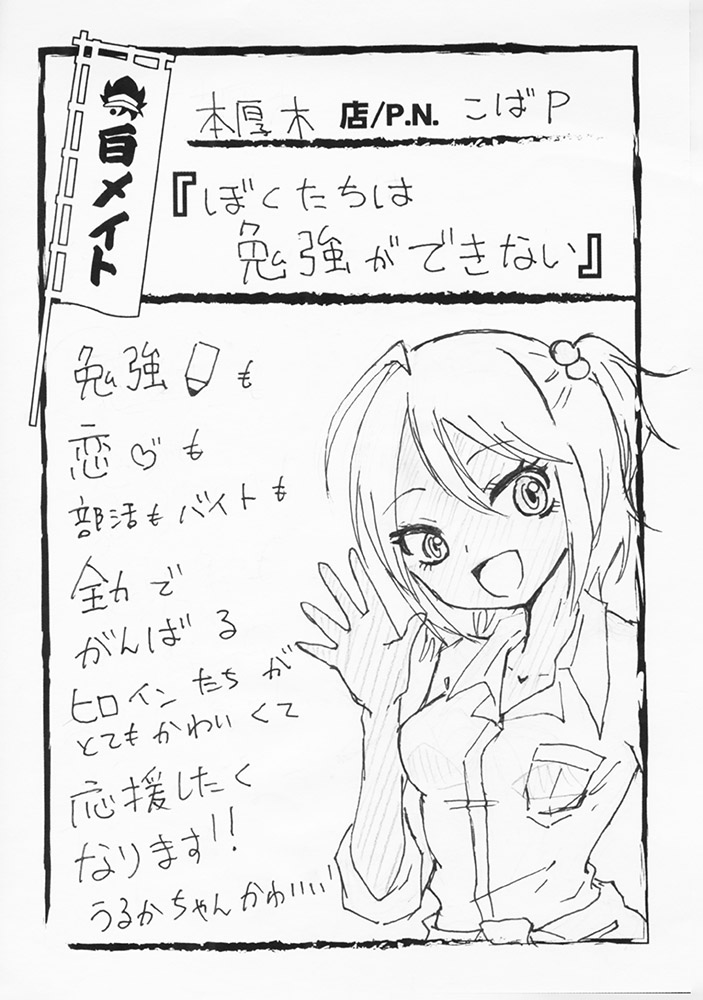 百メイト
本厚木 店/P.N. こばP
『ぼくたちは
勉強ができない』
勉強も
恋も
部活もバイトも
全力で
がんばる
ヒロインたちが
とてもかわいくて
応援したく
なります!!
うるかちゃんかわいい